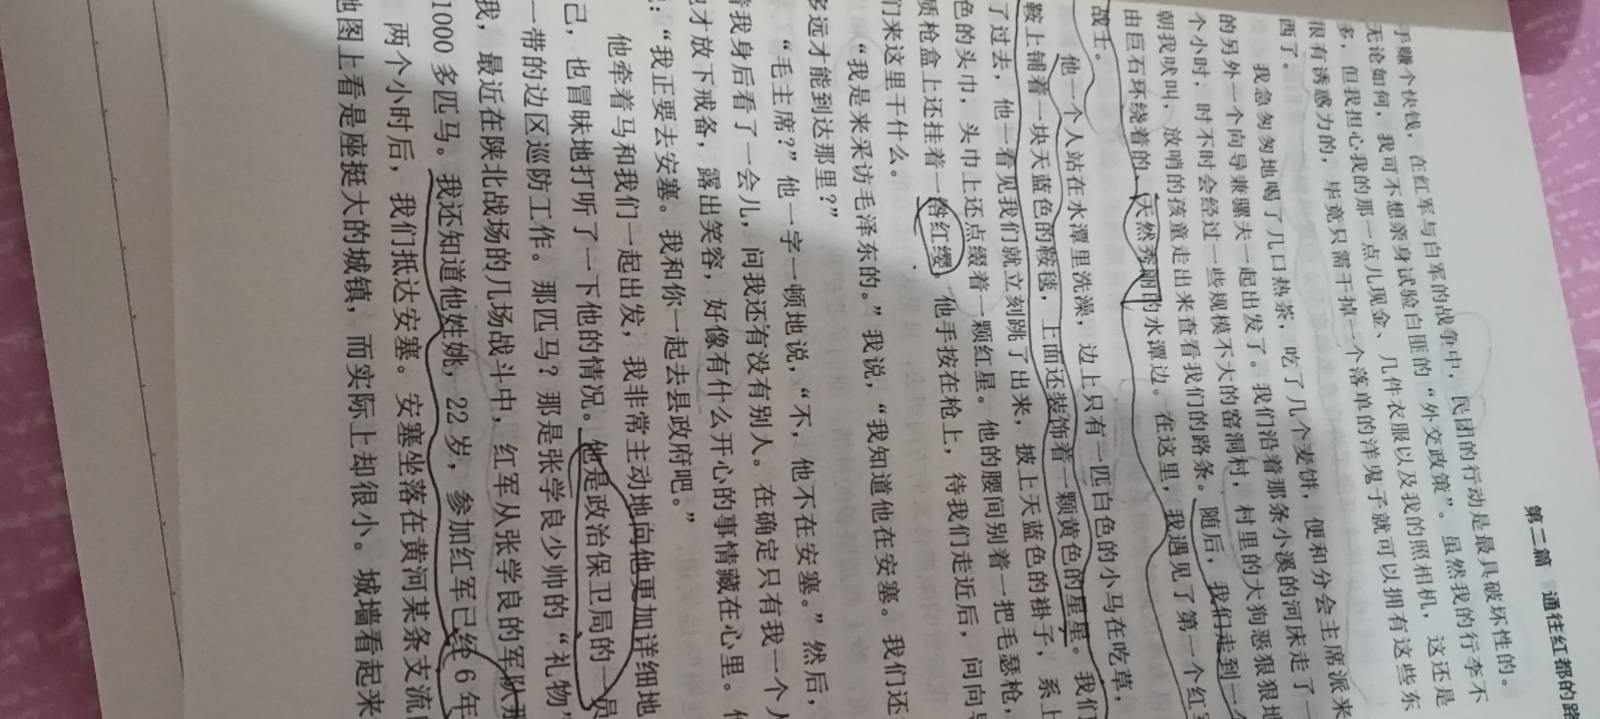 第二篇 通往红都的路
手赚个快钱，在红军与白军的战争中，民团的行动是最具破坏性的。
无论如何，我可不想亲身试验白匪的“外交政策”。虽然我的行李不
多，但我担心我的那一点儿现金、几件衣服以及我的照相机，这还是
很有诱惑力的，毕竟只需干掉一个落单的洋鬼子就可以拥有这些东
西了。
我急匆匆地喝了几口热茶，吃了几个麦饼，便和分会主席派来
的另外一个向导兼骡夫一起出发了。我们沿着那条小溪的河床走了一
个小时，时不时会经过一些规模不大的窑洞村，村里的大狗恶狠狠地
朝我吠叫，放哨的孩童走出来查看我们的路条。随后，我们走到一个
由巨石环绕着的、天然秀丽的水潭边。在这里，我遇见了第一个红军
战士。
他一个人站在水潭里洗澡，边上只有一匹白色的小马在吃草，
鞍上铺着一块天蓝色的鞍毯，上面还装饰着一颗黄色的星星。我们
了过去，他一看见我们就立刻跳了出来，披上天蓝色的褂子，系上
色的头巾，头巾上还点缀着一颗红星。他的腰间别着一把毛瑟枪，
质枪盒上还挂着一绺红缨。他手按在枪上，待我们走近后，问向导
们来这里干什么。
“我是来采访毛泽东的。”我说，“我知道他在安塞。我们还
多远才能到达那里？”
“毛主席？”他一字一顿地说，“不，他不在安塞。”然后，
着我身后看了一会儿，问我还有没有别人。在确定只有我一个人
他才放下戒备，露出笑容，好像有什么开心的事情藏在心里。他
说：“我正要去安塞。我和你一起去县政府吧。”
他牵着马和我们一起出发，我非常主动地向他更加详细地
己，也冒昧地打听了一下他的情况。他是政治保卫局的一员
一带的边区巡防工作。那匹马？那是张学良少帅的“礼物”
我，最近在陕北战场的几场战斗中，红军从张学良的军队那
1000多匹马。我还知道他姓姚，22岁，参加红军已经6年
两个小时后，我们抵达安塞。安塞坐落在黄河某条支流
地图上看是座挺大的城镇，而实际上却很小。城墙看起来